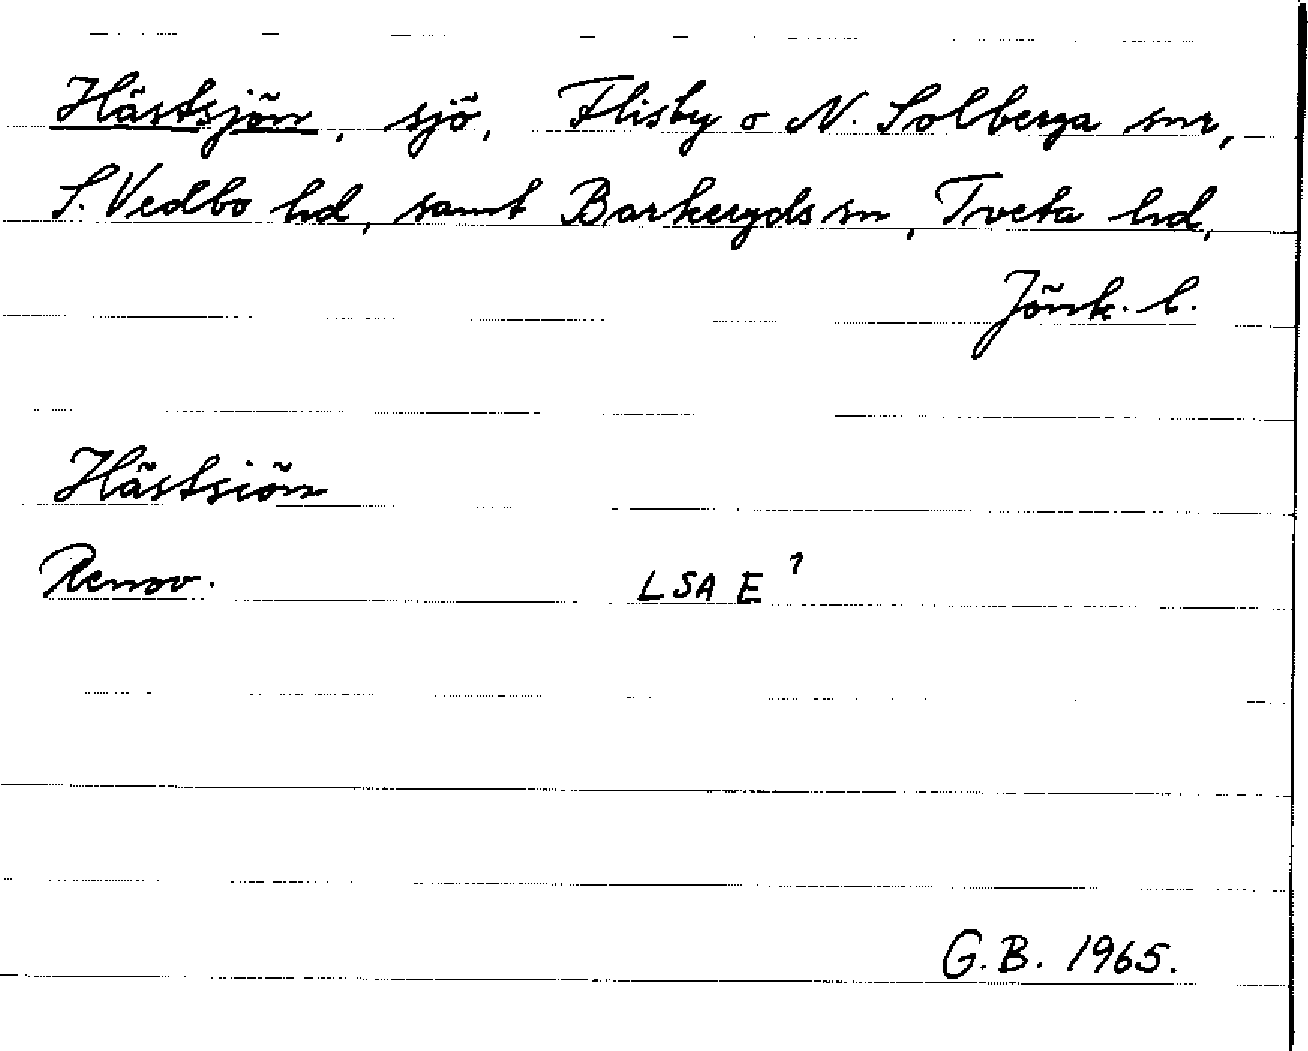 Hästsjön, sjö, Flisby o N. Solberga snr,
S. Vedbo hd, samt Barkeryds sn, Tveta hd,
Jönk. l.
Hästsiön
Renov. LSA E 1
G.B. 1965.